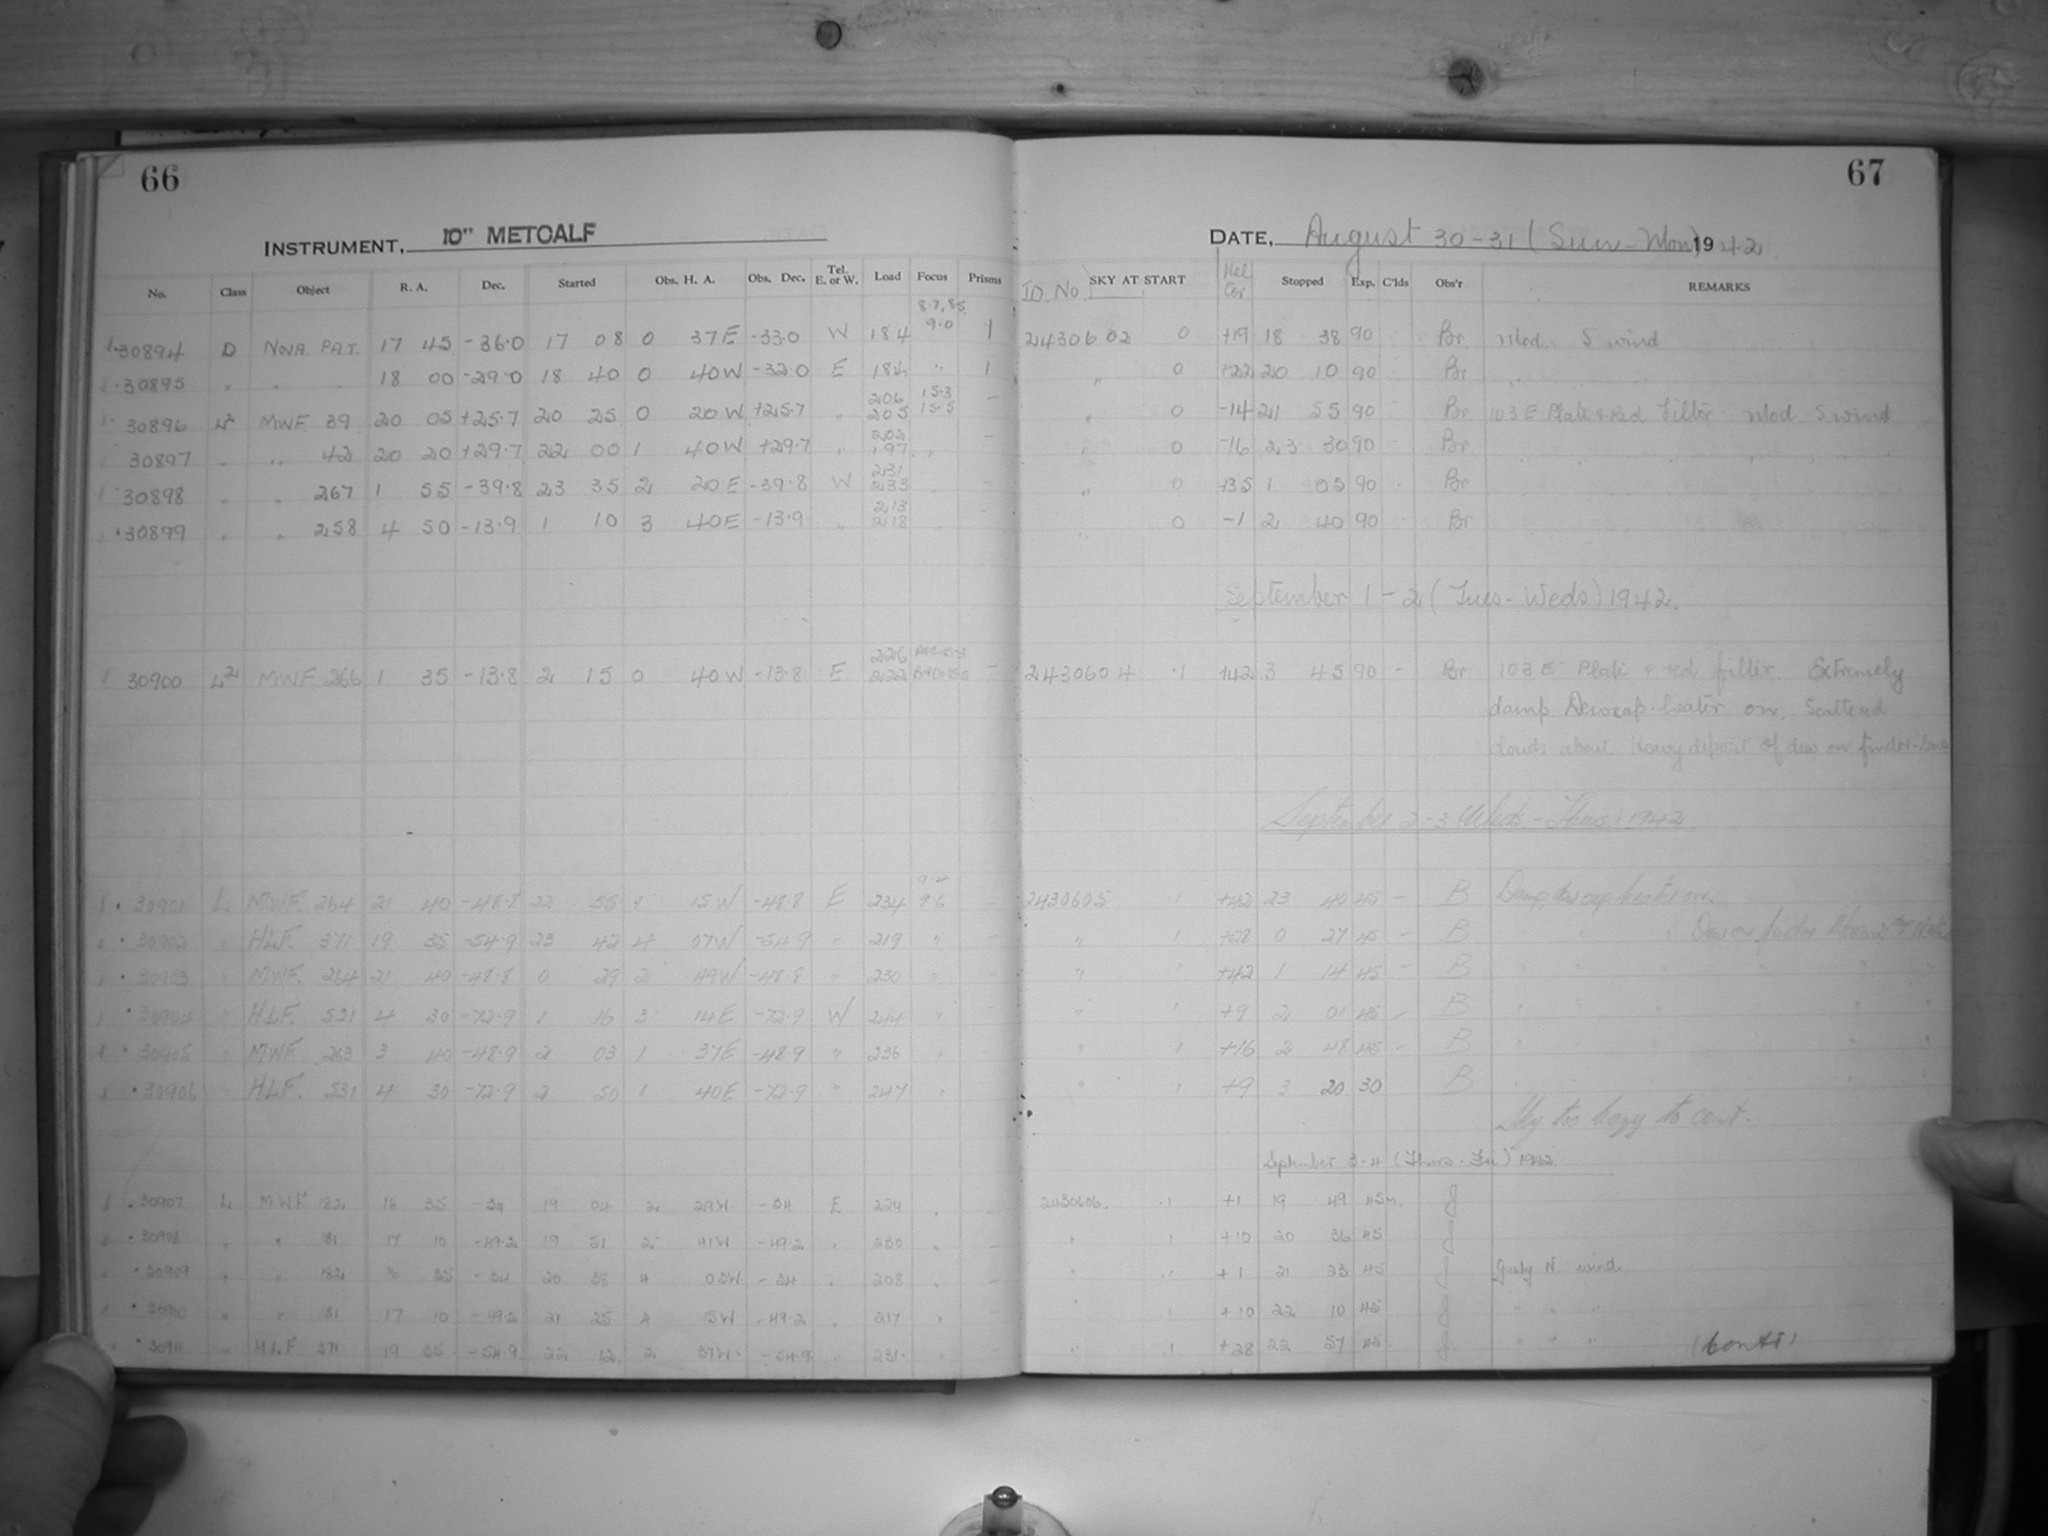 66
67
INSTRUMENT, 10" METCALF
DATE, August 30-31 (Sun-Mon) 1942
No. Class Object R. A. Dec. Started Obs. H. A. Obs. Dec. Tel. E. or W. Load Focus Prisms JD. No. SKY AT START Hel Cor Stopped Exp. C'lds Obs'r REMARKS
8.7, 8.5
30894 D NOVA PAT. 17 45 -36.0 17 08 0 37E -33.0 W 184 9.0 1 2430602 0 +19 18 38 90 Br. Mod. S wind
30895 " " " 18 00 -29.0 18 40 0 40W -32.0 E 184 " 1 " 0 +22 20 10 90 Br " "
206 15.3
30896 L² MWF 39 20 05 +25.7 20 25 0 20W +25.7 " 205 15.5 - " 0 -14 21 55 90 Br 103E Plate & Red Filter Mod S wind
202
30897 " " 42 20 20 +29.7 22 00 1 40W +29.7 " 197 " - " 0 -16 23 30 90 Br
231
30898 " " 267 1 55 -39.8 23 35 2 20E -39.8 W 233 - " 0 +35 1 05 90 Br
213
30899 " " 258 4 50 -13.9 1 10 3 40E -13.9 " 218 - " 0 -1 2 40 90 Br
September 1-2 (Tues-Weds) 1942.
226
30900 L² MWF 266 1 35 -13.8 2 15 0 40W -13.8 E 222 - 2430604 .1 +42 3 45 90 - Br 103E Plate & red filter. Extremely
damp. Dewcap-heater on. Scattered
clouds about Heavy deposit of dew on finder-lens
September 2-3 (Weds-Thurs) 1942
9.4
30901 L MWF. 264 21 40 -48.8 22 55 1 15W -48.8 E 234 9.6 - 2430605 .1 +42 23 40 45 - B Damp, dewcap heater on.
30902 " HLF. 371 19 35 -54.9 23 42 4 07W -54.9 " 219 " - " .1 +28 0 27 45 - B " " " Dew on finder
30903 " MWF. 264 21 40 -48.8 0 29 2 49W -48.8 " 230 " - " .1 +42 1 14 45 - B " "
30904 " HLF. 531 4 30 -72.9 1 16 3 14E -72.9 W 244 " - " .1 +9 2 01 45 - B " "
30905 " MWF 263 3 40 -48.9 2 03 1 37E -48.9 " 236 " - " .1 +16 2 48 45 - B " "
30906 " HLF. 531 4 30 -72.9 2 50 1 40E -72.9 " 247 " - " .1 +9 3 20 30 B
Sky too hazy to cont.
September 3-4 (Thurs-Fri) 1942
30907 L MWF 182 16 35 -34 19 04 2 29W -34 E 224 " - 2430606. .1 +1 19 49 45m.
30908 " " 181 17 10 -49.2 19 51 2 41W -49.2 " 230 " - " .1 +10 20 36 45
30909 " " 182 16 35 -34 20 38 4 03W -34 " 208 " - " .1 +1 21 23 45 Gusty N. wind
30910 " " 181 17 10 -49.2 21 25 4 15W -49.2 " 217 " - " .1 +10 22 10 45 " " "
30911 " HLF 371 19 35 -54.9 22 12 2 37W -54.9 " 231 " - " .1 +28 22 57 45 " " "
(contd)